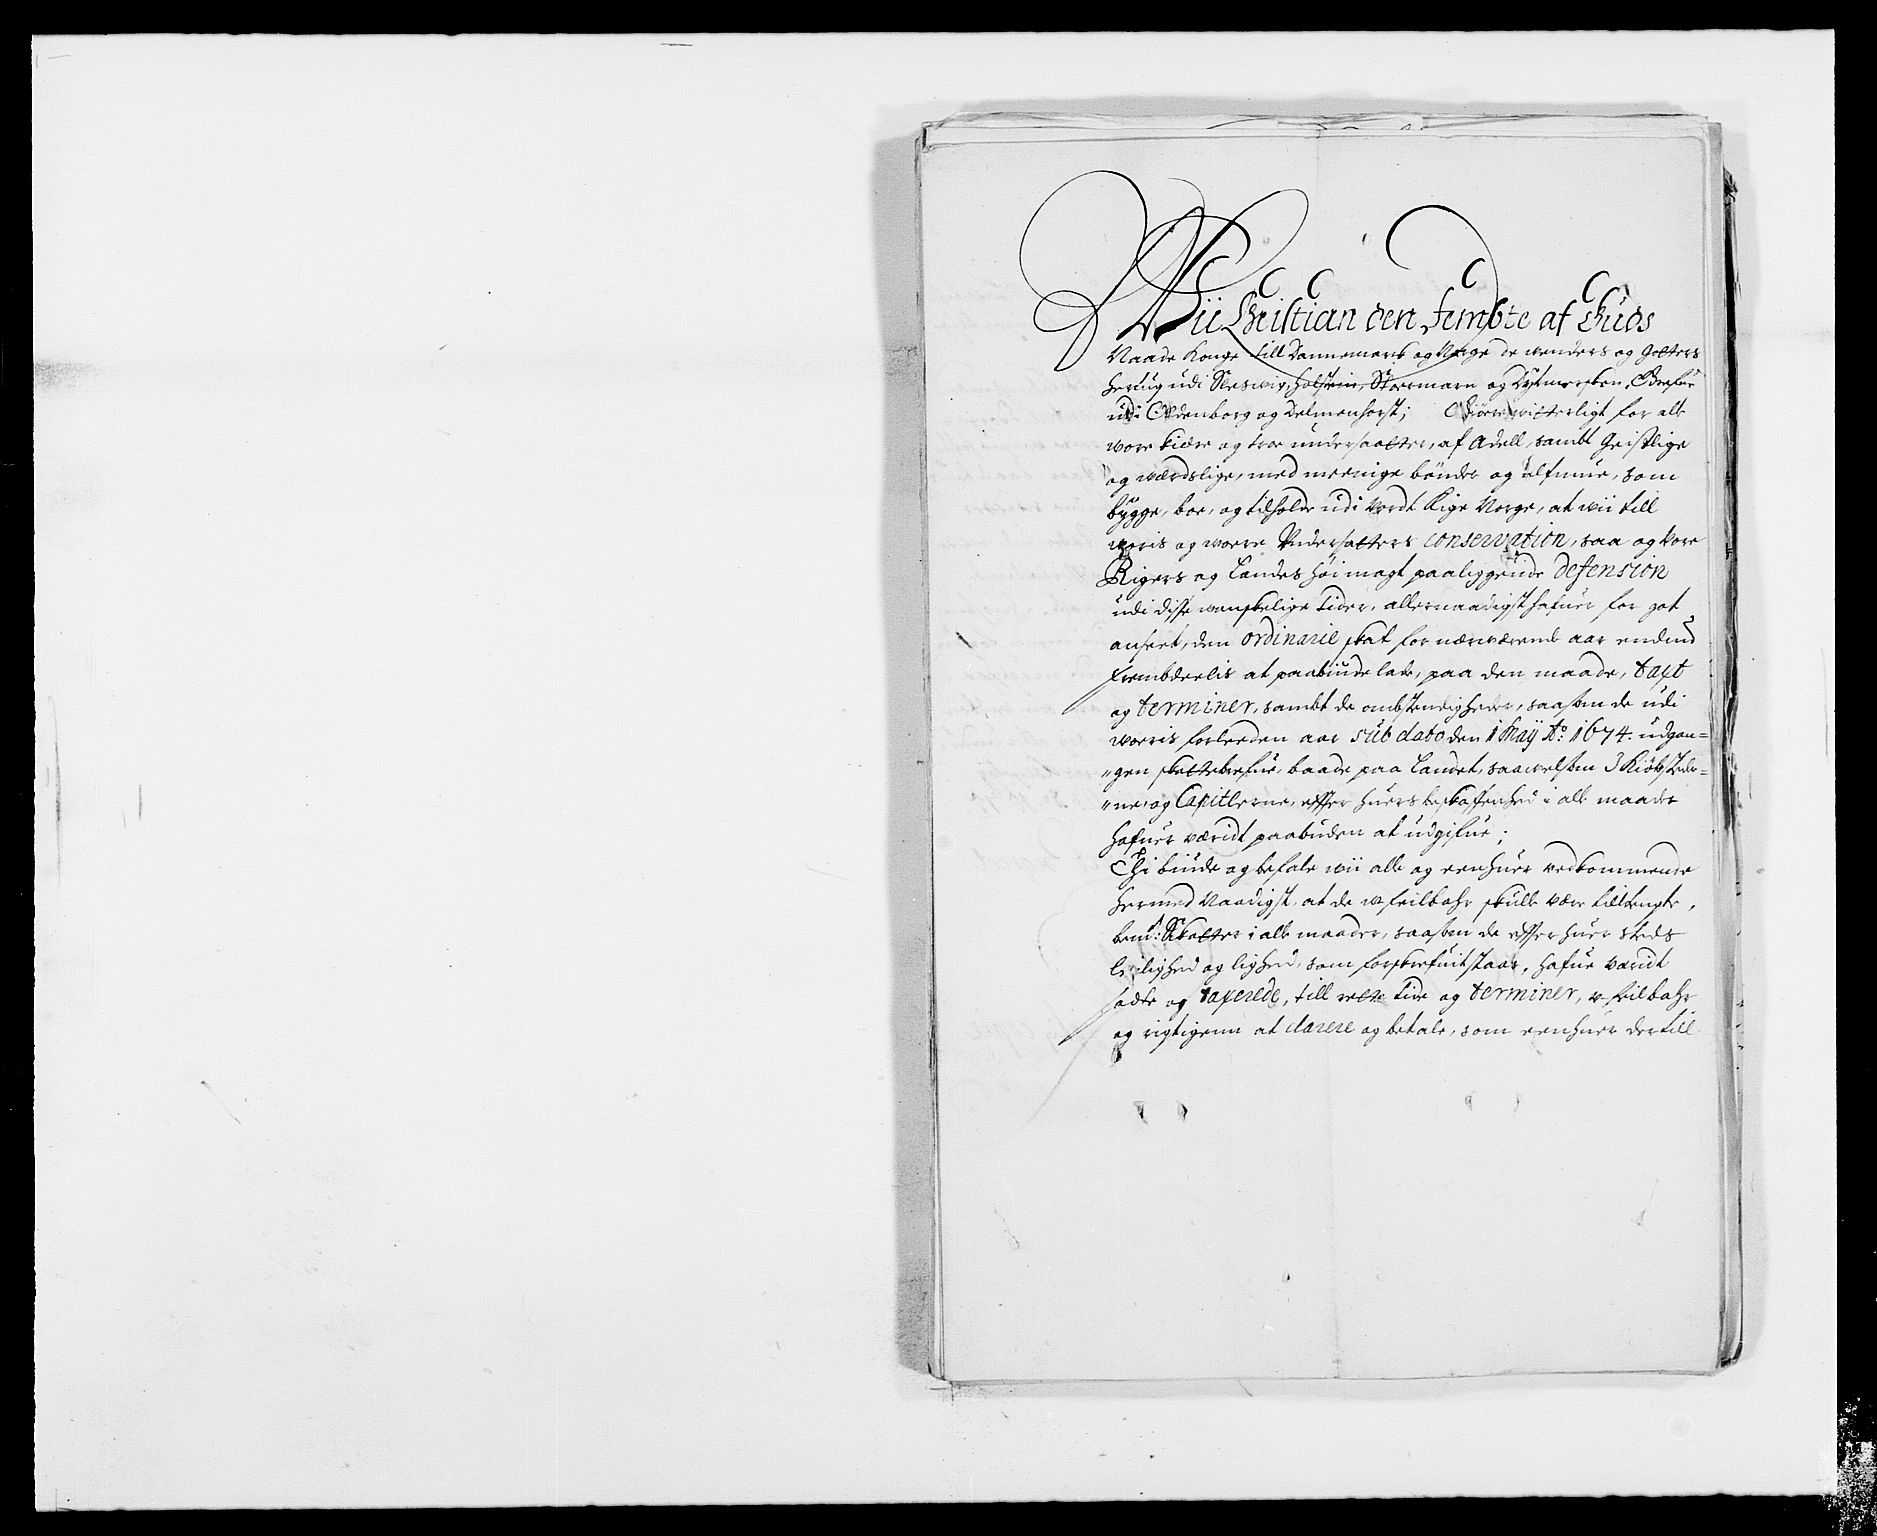 Wii Christian den Fembte af Guds
Naade Konge till Dannemark og Norge de wenders og Gotters
Hertug udi Slesswig, Holstein, Stormarn og Dytmersken, Grefue
udi Oldenborg og Delmenhorst; Giøre witterligt for alle
wore kiære og troe undersaatter, af Adell, sambt Geistlige
og værdslige, med meenige bønder og almue, som
bygge, boe, og tilholde udi Vordt Rige Norge, at wii till
woris og worre Undersatters conservation, saa og Vore
Rigers og Landes høimagt paaliggende defension
udi disse wanskelige tider, allernaadigst hafuer for got
anseet, den ordinarie skat for nærværende aar endnu
frembdeelis at paabiude lade, paa den maade, taxt
og terminer, sambt de ombstendigheder, saasom de udi
worris forleeden aar sub dato den 1 Maÿ Aº: 1674. udgan=
"gen skattebrefue, baade paa Landet, saawelsom I Kiøbstæder=
"ne, og Capitlerne, effter huers beskaffenhed i alle maader
hafuer væridt paabuden at udgifue;
Thi biude og befale wii alle og eenhuer vedkommende
hermed Naadigst, at de ufeilbahr skulle være tiltengte,
bemt: Skatter i alle maader, saasom de effter huer steds
Leilighed og lighed, som forskrefuit staar, hafue væridt
satte og taxerede, till rette tide og terminer, ufeilbahr
og rigtigenn at clarere og betale, som eenhuer dertill